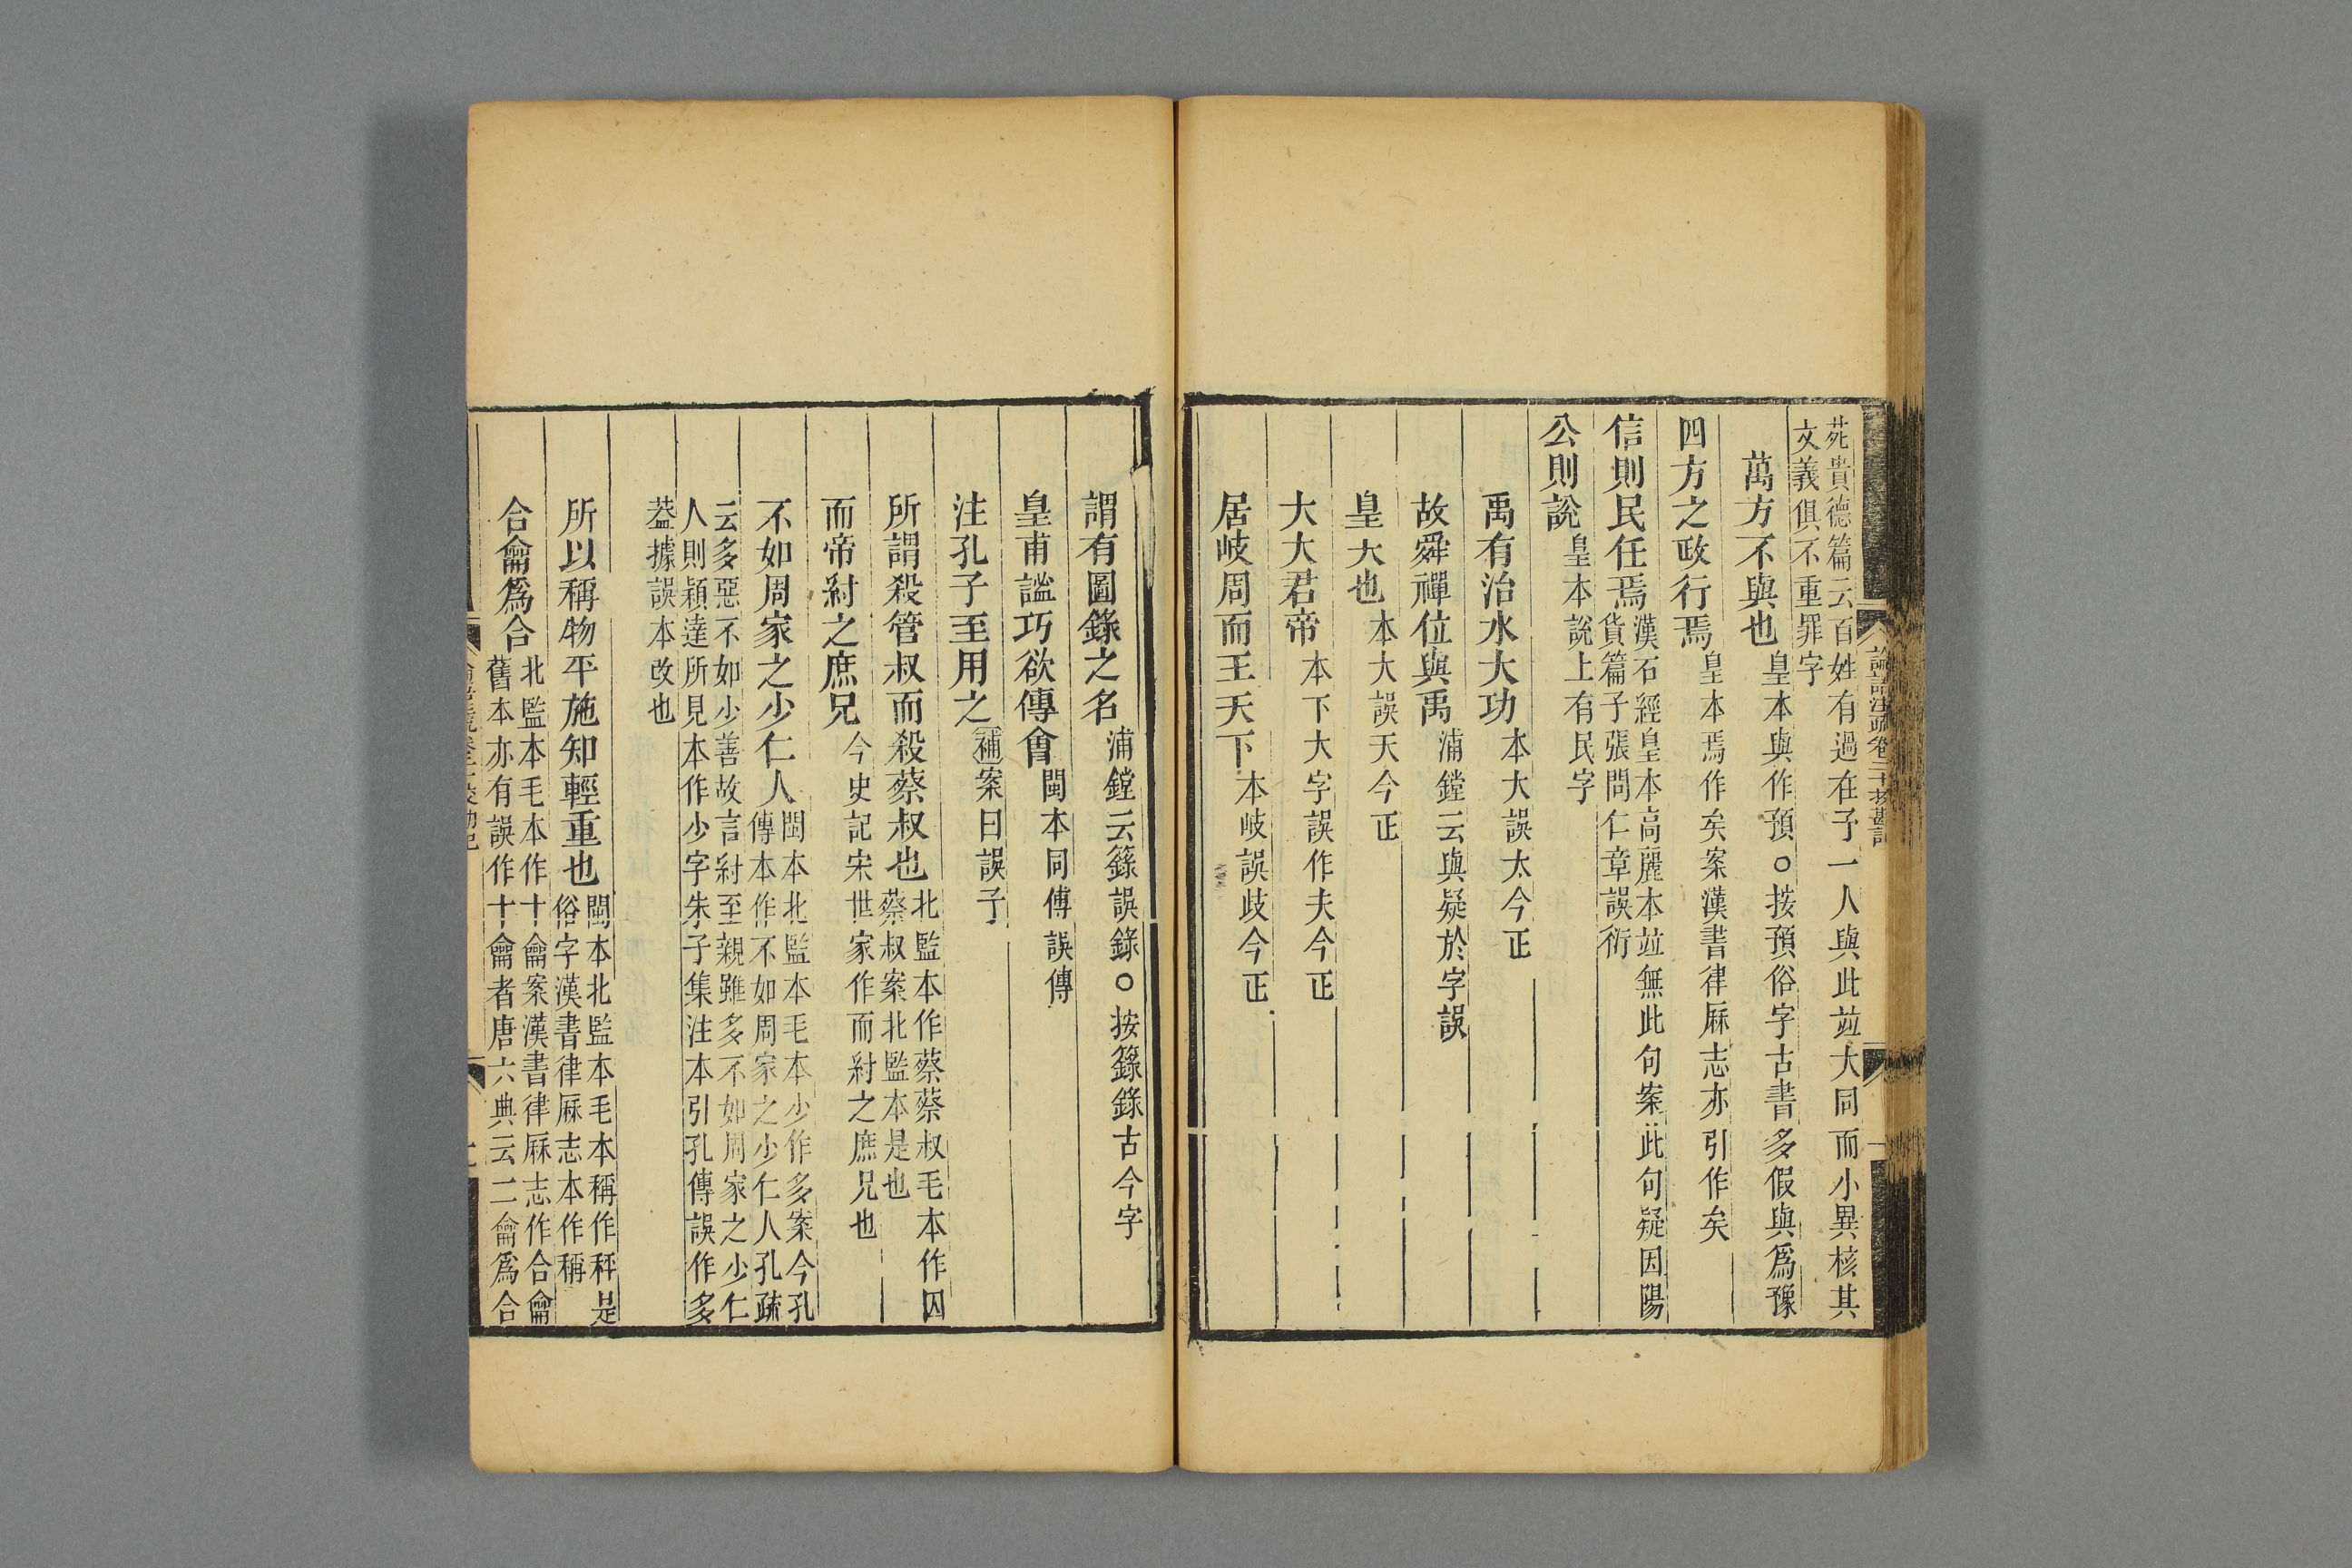 苑貴德篇云百姓有過在予一人與此並大同而小異核其
文義俱不重罪字
萬方不與也皇本與作預○按預俗字古書多假與爲豫
四方之政行焉皇本焉作矣案漢書律厤志亦引作矣
信則民任焉漢石經皇本高麗本並無此句案此句疑因陽
貨篇子張問仁章誤衍
公則說皇本說上有民字
禹有治水大功本大誤太今正
故舜禪位與禹浦鏜云與疑於字誤
皇大也本大誤天今正
大大君帝本下大字誤作夫今正
居岐周而王天下本岐誤歧今正
謂有圖籙之名浦鏜云籙誤錄○按籙錄古今字
皇甫謐巧欲傅會閩本同傅誤傳
注孔子至用之補案曰誤子
所謂殺管叔而殺蔡叔也北監本作蔡蔡叔毛本作囚
蔡叔案北監本是也
而帝紂之庶兄今史記宋世家作而紂之庶兄也
不如周家之少仁人閩本北監本毛本少作多案今孔
傳本作不如周家之少仁人孔疏
云多惡不如少善故言紂至親雖多不如周家之少仁
人則穎達所見本作少字朱子集注本引孔傳誤作多
葢據誤本改也
所以稱物平施知輕重也閩本北監本毛本稱作秤是
俗字漢書律厤志本作稱
合龠爲合北監本毛本作十龠案漢書律厤志作合龠
舊本亦有誤作十龠者唐六典云二龠爲合